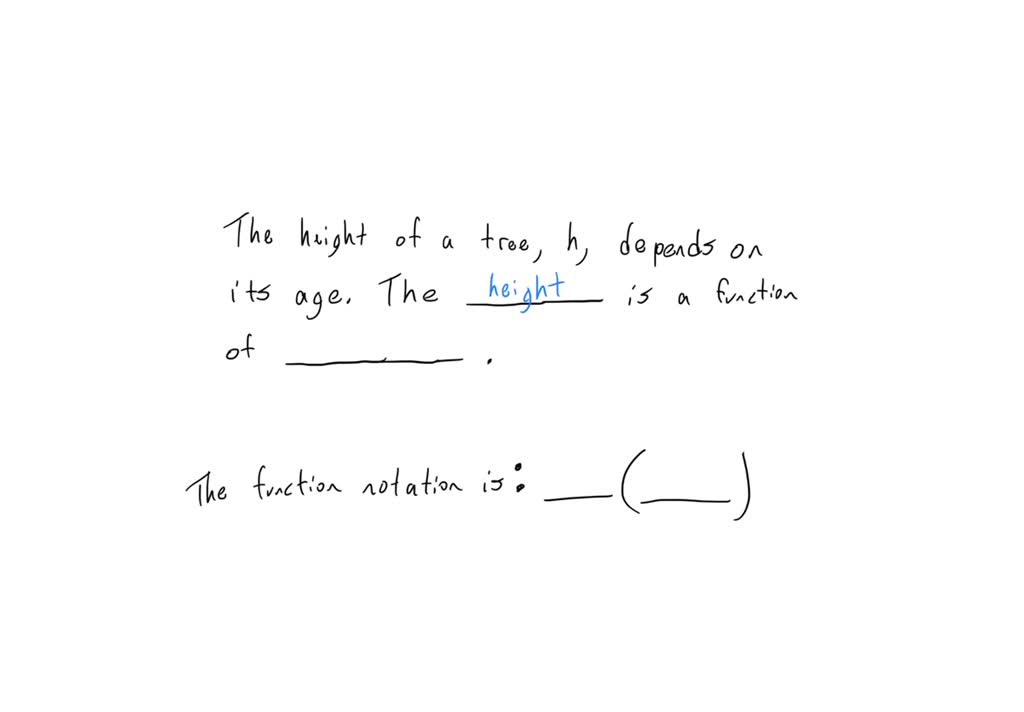 The height of a tree, h, depends on
its age. The height is a function
of ______ .
The function notation is: ___(____)